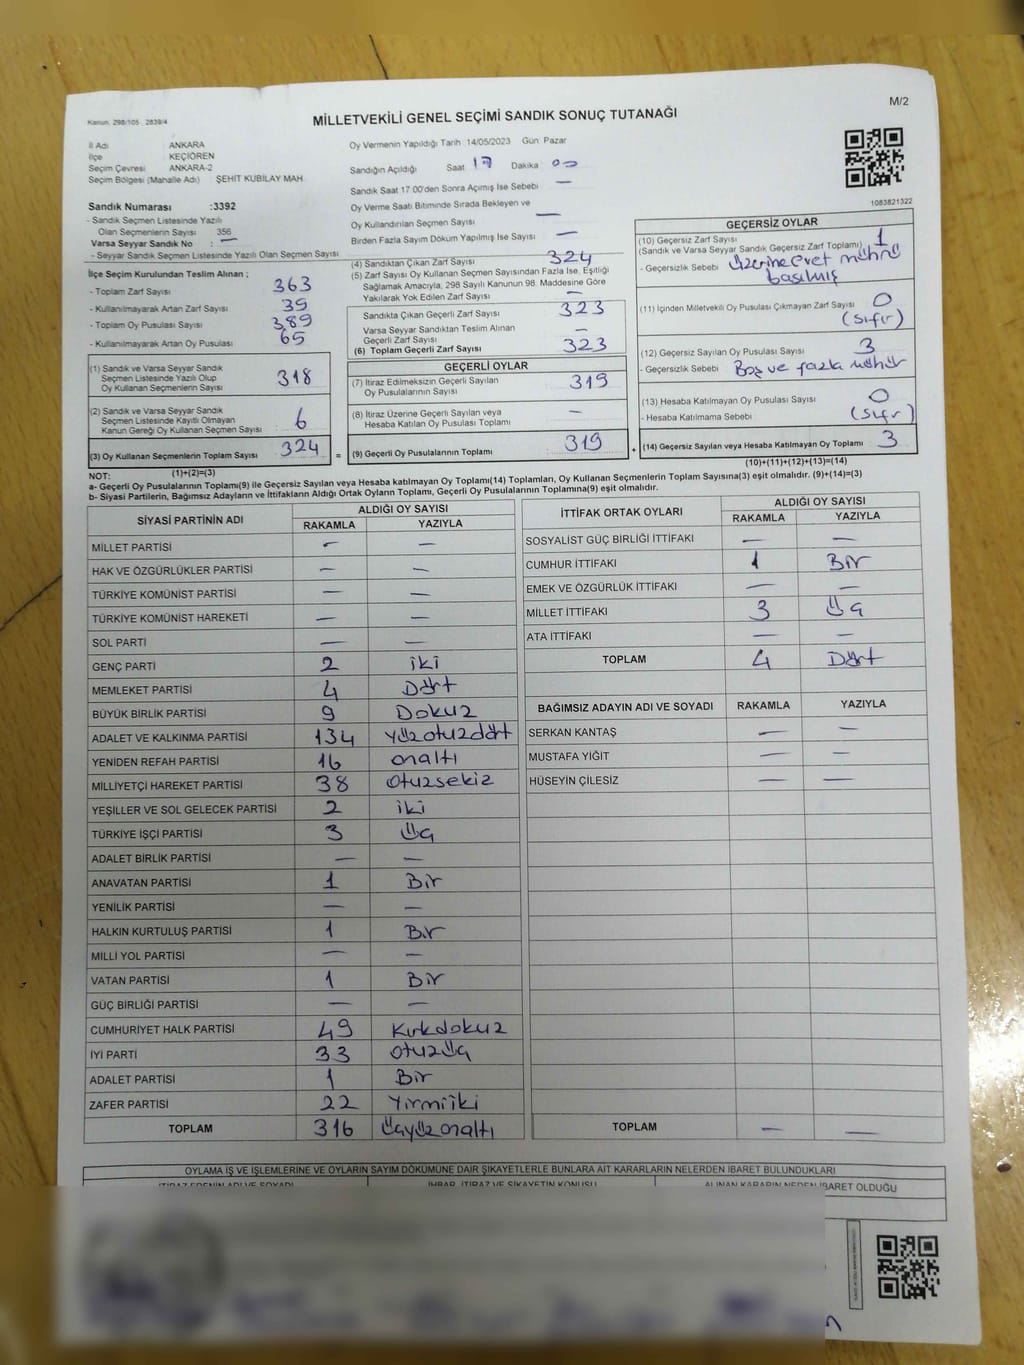 M/2
Kanun: 298/105 , 2839/4
MİLLETVEKİLİ GENEL SEÇİMİ SANDIK SONUÇ TUTANAĞI
İl Adı ANKARA
İlçe KEÇİÖREN
Seçim Çevresi ANKARA-2
Seçim Bölgesi (Mahalle Adı) ŞEHİT KUBİLAY MAH.
Sandık Numarası :3392
- Sandık Seçmen Listesinde Yazılı
Olan Seçmenlerin Sayısı 356
Varsa Seyyar Sandık No : —
- Seyyar Sandık Seçmen Listesinde Yazılı Olan Seçmen Sayısı
İlçe Seçim Kurulundan Teslim Alınan ;
- Toplam Zarf Sayısı 363
- Kullanılmayarak Artan Zarf Sayısı 39
- Toplam Oy Pusulası Sayısı 389
- Kullanılmayarak Artan Oy Pusulası 65
(1) Sandık ve Varsa Seyyar Sandık
Seçmen Listesinde Yazılı Olup
Oy Kullanan Seçmenlerin Sayısı 318
(2) Sandık ve Varsa Seyyar Sandık
Seçmen Listesinde Kayıtlı Olmayan
Kanun Gereği Oy Kullanan Seçmen Sayısı 6
(3) Oy Kullanan Seçmenlerin Toplam Sayısı 324 =
(1)+(2)=(3)
Oy Vermenin Yapıldığı Tarih 14/05/2023 Gün Pazar
Sandığın Açıldığı Saat 17 Dakika 00
Sandık Saat 17:00'den Sonra Açımış İse Sebebi —
Oy Verme Saati Bitiminde Sırada Bekleyen ve
Oy Kullandırılan Seçmen Sayısı —
Birden Fazla Sayım Döküm Yapılmış İse Sayısı —
(4) Sandıktan Çıkan Zarf Sayısı 324
(5) Zarf Sayısı Oy Kullanan Seçmen Sayısından Fazla İse, Eşitliği
Sağlamak Amacıyla, 298 Sayılı Kanunun 98. Maddesine Göre
Yakılarak Yok Edilen Zarf Sayısı —
Sandıkta Çıkan Geçerli Zarf Sayısı 323
Varsa Seyyar Sandıktan Teslim Alınan
Geçerli Zarf Sayısı —
(6) Toplam Geçerli Zarf Sayısı 323
GEÇERLİ OYLAR
(7) İtiraz Edilmeksizin Geçerli Sayılan
Oy Pusulalarının Sayısı 319
(8) İtiraz Üzerine Geçerli Sayılan veya
Hesaba Katılan Oy Pusulası Toplamı —
(9) Geçerli Oy Pusulalarının Toplamı 319 +
1083821322
GEÇERSİZ OYLAR
(10) Geçersiz Zarf Sayısı 1
(Sandık ve Varsa Seyyar Sandık Geçersiz Zarf Toplamı)
- Geçersizlik Sebebi Üzerine evet mührü
basılmış
(11) İçinden Milletvekili Oy Pusulası Çıkmayan Zarf Sayısı 0
(Sıfır)
(12) Geçersiz Sayılan Oy Pusulası Sayısı 3
- Geçersizlik Sebebi Boş ve fazla mühür
(13) Hesaba Katılmayan Oy Pusulası Sayısı 0
- Hesaba Katılmama Sebebi (Sıfır)
(14) Geçersiz Sayılan veya Hesaba Katılmayan Oy Toplamı 3
(10)+(11)+(12)+(13)=(14)
NOT:
a- Geçerli Oy Pusulalarının Toplamı(9) ile Geçersiz Sayılan veya Hesaba katılmayan Oy Toplamı(14) Toplamları, Oy Kullanan Seçmenlerin Toplam Sayısına(3) eşit olmalıdır. (9)+(14)=(3)
b- Siyasi Partilerin, Bağımsız Adayların ve İttifakların Aldığı Ortak Oyların Toplamı, Geçerli Oy Pusulalarının Toplamına(9) eşit olmalıdır.
SİYASİ PARTİNİN ADI ALDIĞI OY SAYISI
RAKAMLA YAZIYLA
MİLLET PARTİSİ — —
HAK VE ÖZGÜRLÜKLER PARTİSİ — —
TÜRKİYE KOMÜNİST PARTİSİ — —
TÜRKİYE KOMÜNİST HAREKETİ — —
SOL PARTİ — —
GENÇ PARTİ 2 iki
MEMLEKET PARTİSİ 4 Dört
BÜYÜK BİRLİK PARTİSİ 9 Dokuz
ADALET VE KALKINMA PARTİSİ 134 yüzotuzdört
YENİDEN REFAH PARTİSİ 16 onaltı
MİLLİYETÇİ HAREKET PARTİSİ 38 otuzsekiz
YEŞİLLER VE SOL GELECEK PARTİSİ 2 iki
TÜRKİYE İŞÇİ PARTİSİ 3 Üç
ADALET BİRLİK PARTİSİ — —
ANAVATAN PARTİSİ 1 Bir
YENİLİK PARTİSİ — —
HALKIN KURTULUŞ PARTİSİ 1 Bir
MİLLİ YOL PARTİSİ — —
VATAN PARTİSİ 1 Bir
GÜÇ BİRLİĞİ PARTİSİ — —
CUMHURİYET HALK PARTİSİ 49 Kırkdokuz
İYİ PARTİ 33 otuzüç
ADALET PARTİSİ 1 Bir
ZAFER PARTİSİ 22 Yirmiiki
TOPLAM 316 üçyüzonaltı
İTTİFAK ORTAK OYLARI ALDIĞI OY SAYISI
RAKAMLA YAZIYLA
SOSYALİST GÜÇ BİRLİĞİ İTTİFAKI — —
CUMHUR İTTİFAKI 1 Bir
EMEK VE ÖZGÜRLÜK İTTİFAKI — —
MİLLET İTTİFAKI 3 Üç
ATA İTTİFAKI — —
TOPLAM 4 Dört
BAĞIMSIZ ADAYIN ADI VE SOYADI RAKAMLA YAZIYLA
SERKAN KANTAŞ — —
MUSTAFA YİĞİT — —
HÜSEYİN ÇİLESİZ — —
TOPLAM — —
OYLAMA İŞ VE İŞLEMLERİNE VE OYLARIN SAYIM DÖKÜMÜNE DAİR ŞİKAYETLERLE BUNLARA AİT KARARLARIN NELERDEN İBARET BULUNDUKLARI
İTİRAZ EDENİN ADI VE SOYADI İHBAR, İTİRAZ VE ŞİKAYETİN KONUSU ALINAN KARARIN NEDEN İBARET OLDUĞU